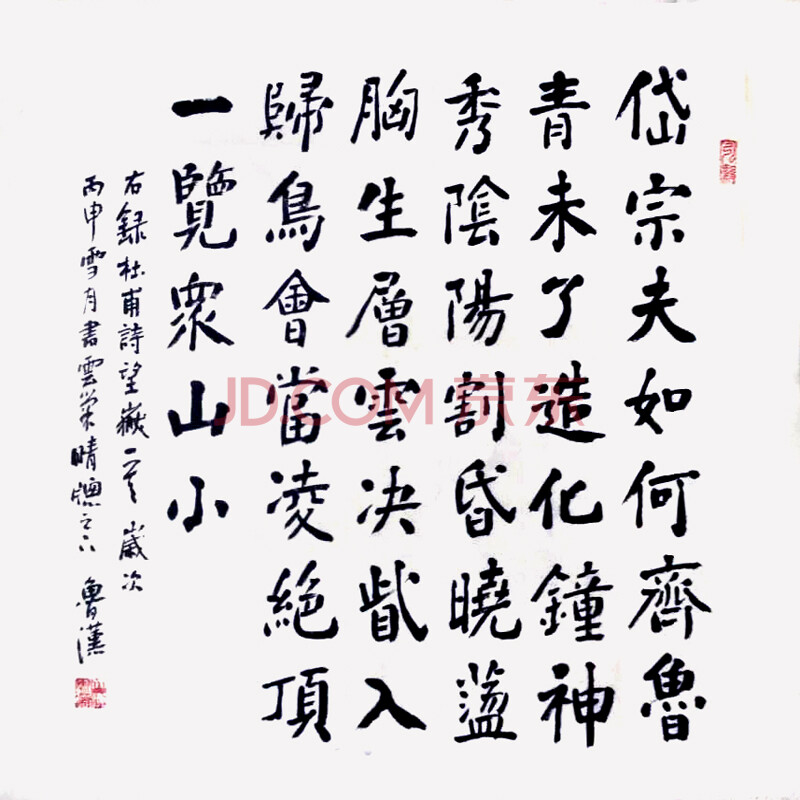 岱宗夫如何齊魯
青未了造化鐘神
秀陰陽割昏曉盪
胸生層雲决眥入
歸鳥會當凌絕頂
一覽眾山小
右録杜甫詩望嶽一首 歲次
丙申雪月書雲榮晴牕之下 魯漢
JD.COM 京东